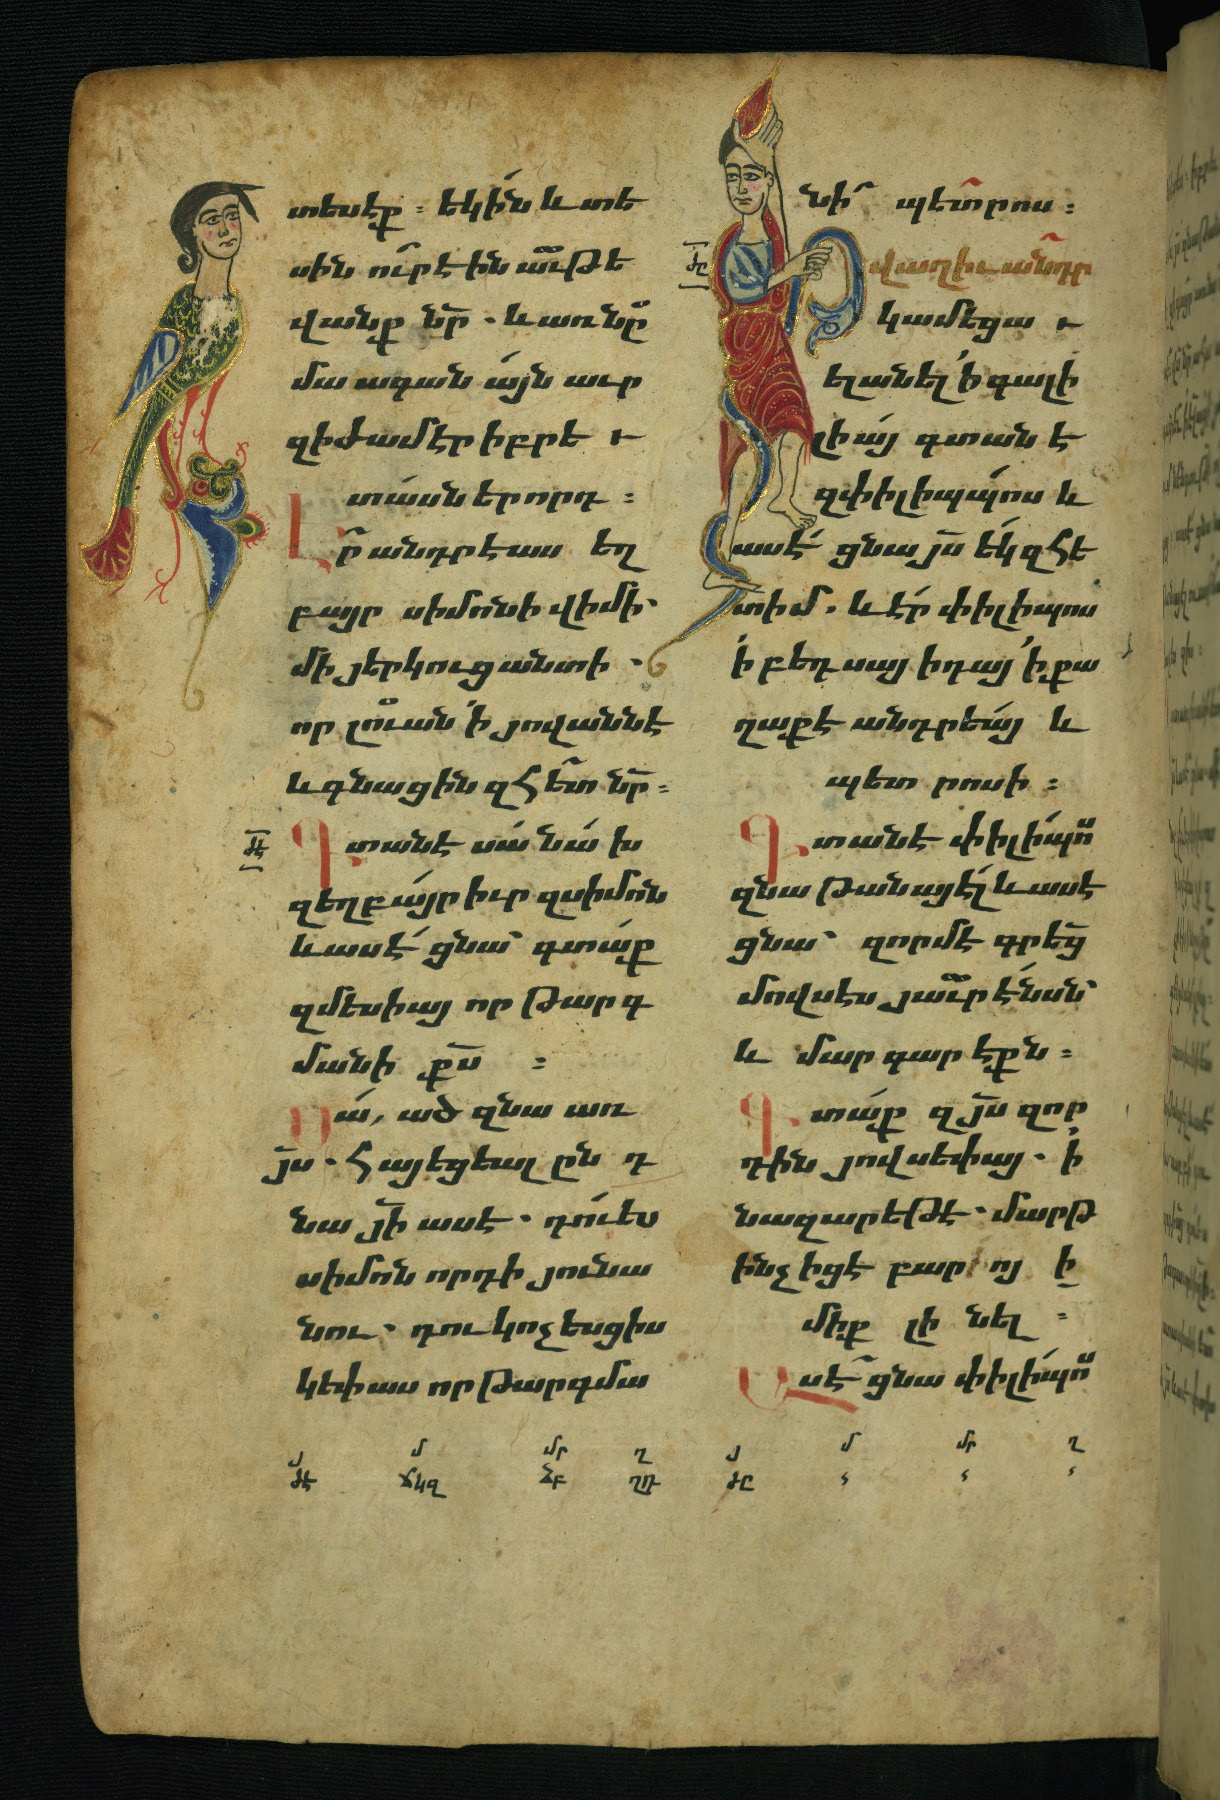 տեսէք ։ եկին և տե
սին ո՞ւր էին աւթե
վանք նր՟ ․ և առ նմ՟
մա ագան զայն աւր
զի ժամ էր իբրե ւ
տասներորդ ։
Եր՟ անդրէաս եղ
բայր սիմոնի վիմի՝
մի յերկուցանտի ․
որ լուան ՚ի յովաննէ
և գնացին զհետ նր՟ ։
ԺԷ
Գտանէ սա նախ
զեղբայր իւր զսիմոն
և ասէ ցնա՝ գտաք
զմեսիայ որ թարգ
մանի քս՟ ։
Սա, ած զնա առ
յս՟ ․ հայեցեալ ըն դ
նա յի՟ ասէ ․ դու ես
սիմոն որդի յունա
նու ․ դու կոչեսցիս
կեփաս որ թարգմա
նի՟ պետրոս ։
ԺԸ
Ի վաղիւ անդր
կամեցա ւ
ելանել ՚ի գալի
լիայ գտան է
զփիլիպպոս և
ասէ ցնա յս՟ եկ զհե
տ իմ ․ և էր փիլիպոս
՚ի բեդսայիդայ ՚ի քա
ղաքէ անդրեայ և
պետ րոսի ։
Գտանէ փիլիպո՟ս
զնաթանայէլ և ասէ
ցնա՝ զորմէ գրեց
մովսէս յաւրէնսն՝
և մարգարէքն ։
Գտաք զյս՟ զոր
դին յովսեփայ ․ ՚ի
նազարեթէ ․ մարթ
ինչ իցէ բար ոյ ի
միք լի նել ։
Ասէ ցնա փիլիպո՟ս
Յ Մ ՄՐ Ղ Յ Մ ՄՐ Ղ
ԺԷ ՃԿԶ ՁԲ ՂԴ ԺԸ